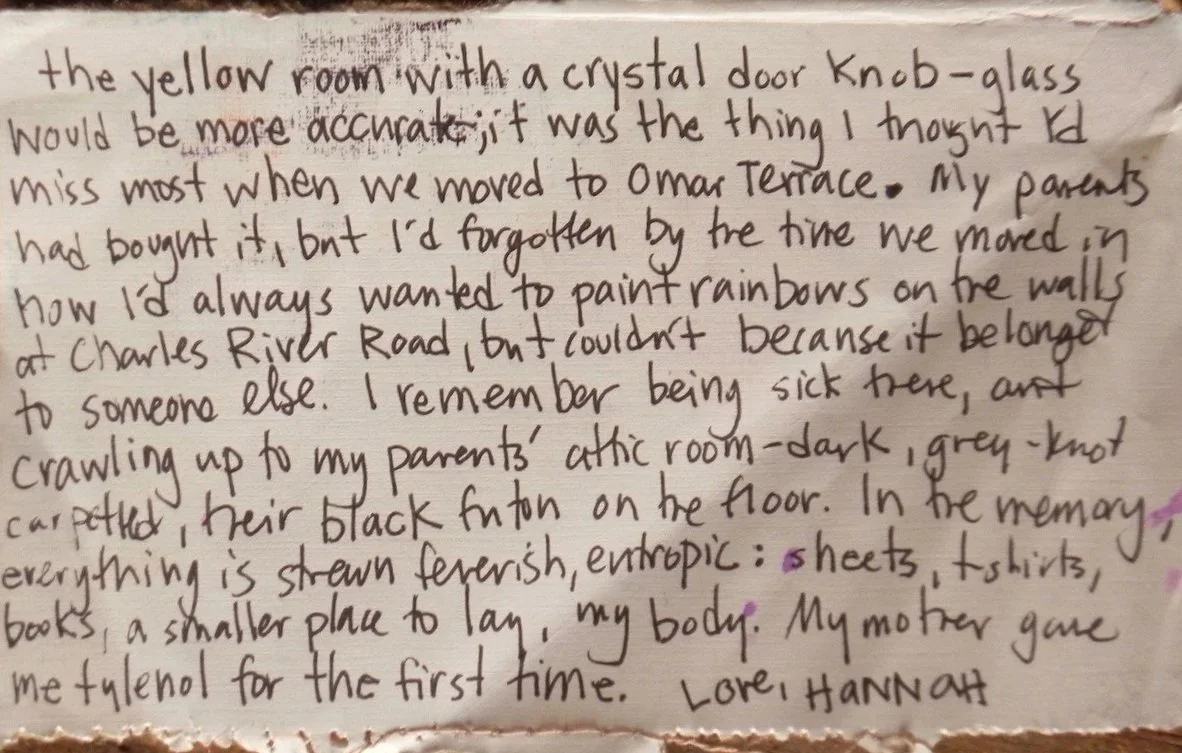 the yellow room with a crystal door knob-glass
would be more accurate; it was the thing I thought I'd
miss most when we moved to Omar Terrace. My parents
had bought it, but I'd forgotten by the time we moved in
how I'd always wanted to paint rainbows on the walls
at Charles River Road, but couldn't because it belonged
to someone else. I remember being sick there, and
crawling up to my parents' attic room-dark, grey-knot
carpetted, their black futon on the floor. In the memory,
everything is strewn feverish, entropic: sheets, t-shirts,
books, a smaller place to lay, my body. My mother gave
me tylenol for the first time. Love, HANNAH